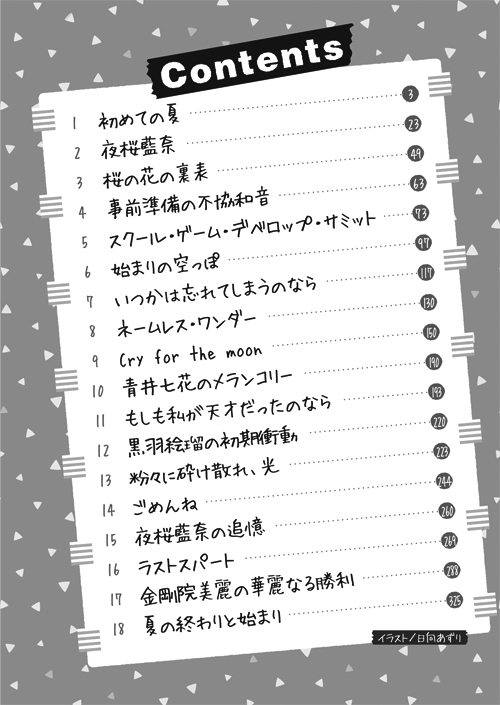 Contents
1 初めての夏 3
2 夜桜藍奈 23
3 桜の花の裏表 49
4 事前準備の不協和音 63
5 スクール・ゲーム・デベロップ・サミット 73
6 始まりの空っぽ 97
7 いつかは忘れてしまうのなら 117
8 ネームレス・ワンダー 130
9 Cry for the moon 150
10 青井七花のメランコリー 190
11 もしも私が天才だったのなら 193
12 黒羽絵瑠の初期衝動 220
13 粉々に砕け散れ、光 223
14 ごめんね 244
15 夜桜藍奈の追憶 260
16 ラストスパート 269
17 金剛院美麗の華麗なる勝利 288
18 夏の終わりと始まり 325
イラスト/日向あずり